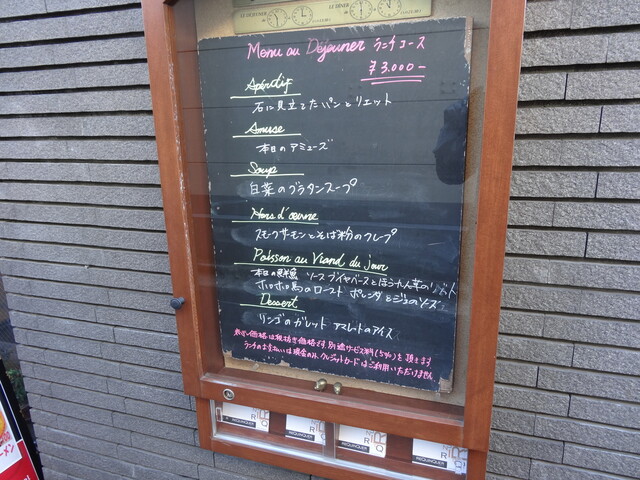 LE DEJEUNER
LE DINER
Menu au Déjeuner ランチコース
¥3.000-
Apéritif
石に見立てたパンとリエット
Amuse
本日のアミューズ
Soup
白菜のグラタンスープ
Hors d'œuvre
スモークサーモンとそば粉のクレープ
Poisson au Viand du jour
本日の鮮魚 ソースブイヤベースとほうれん草の
ホロホロ鳥のロースト ポレンタとジュのソース
Dessert
リンゴのガレット アマレットのアイス
価格は税抜き価格です。別途サービス料(5%)を頂きます
ランチのお支払いは現金のみ、クレジットカードはご利用いただけません